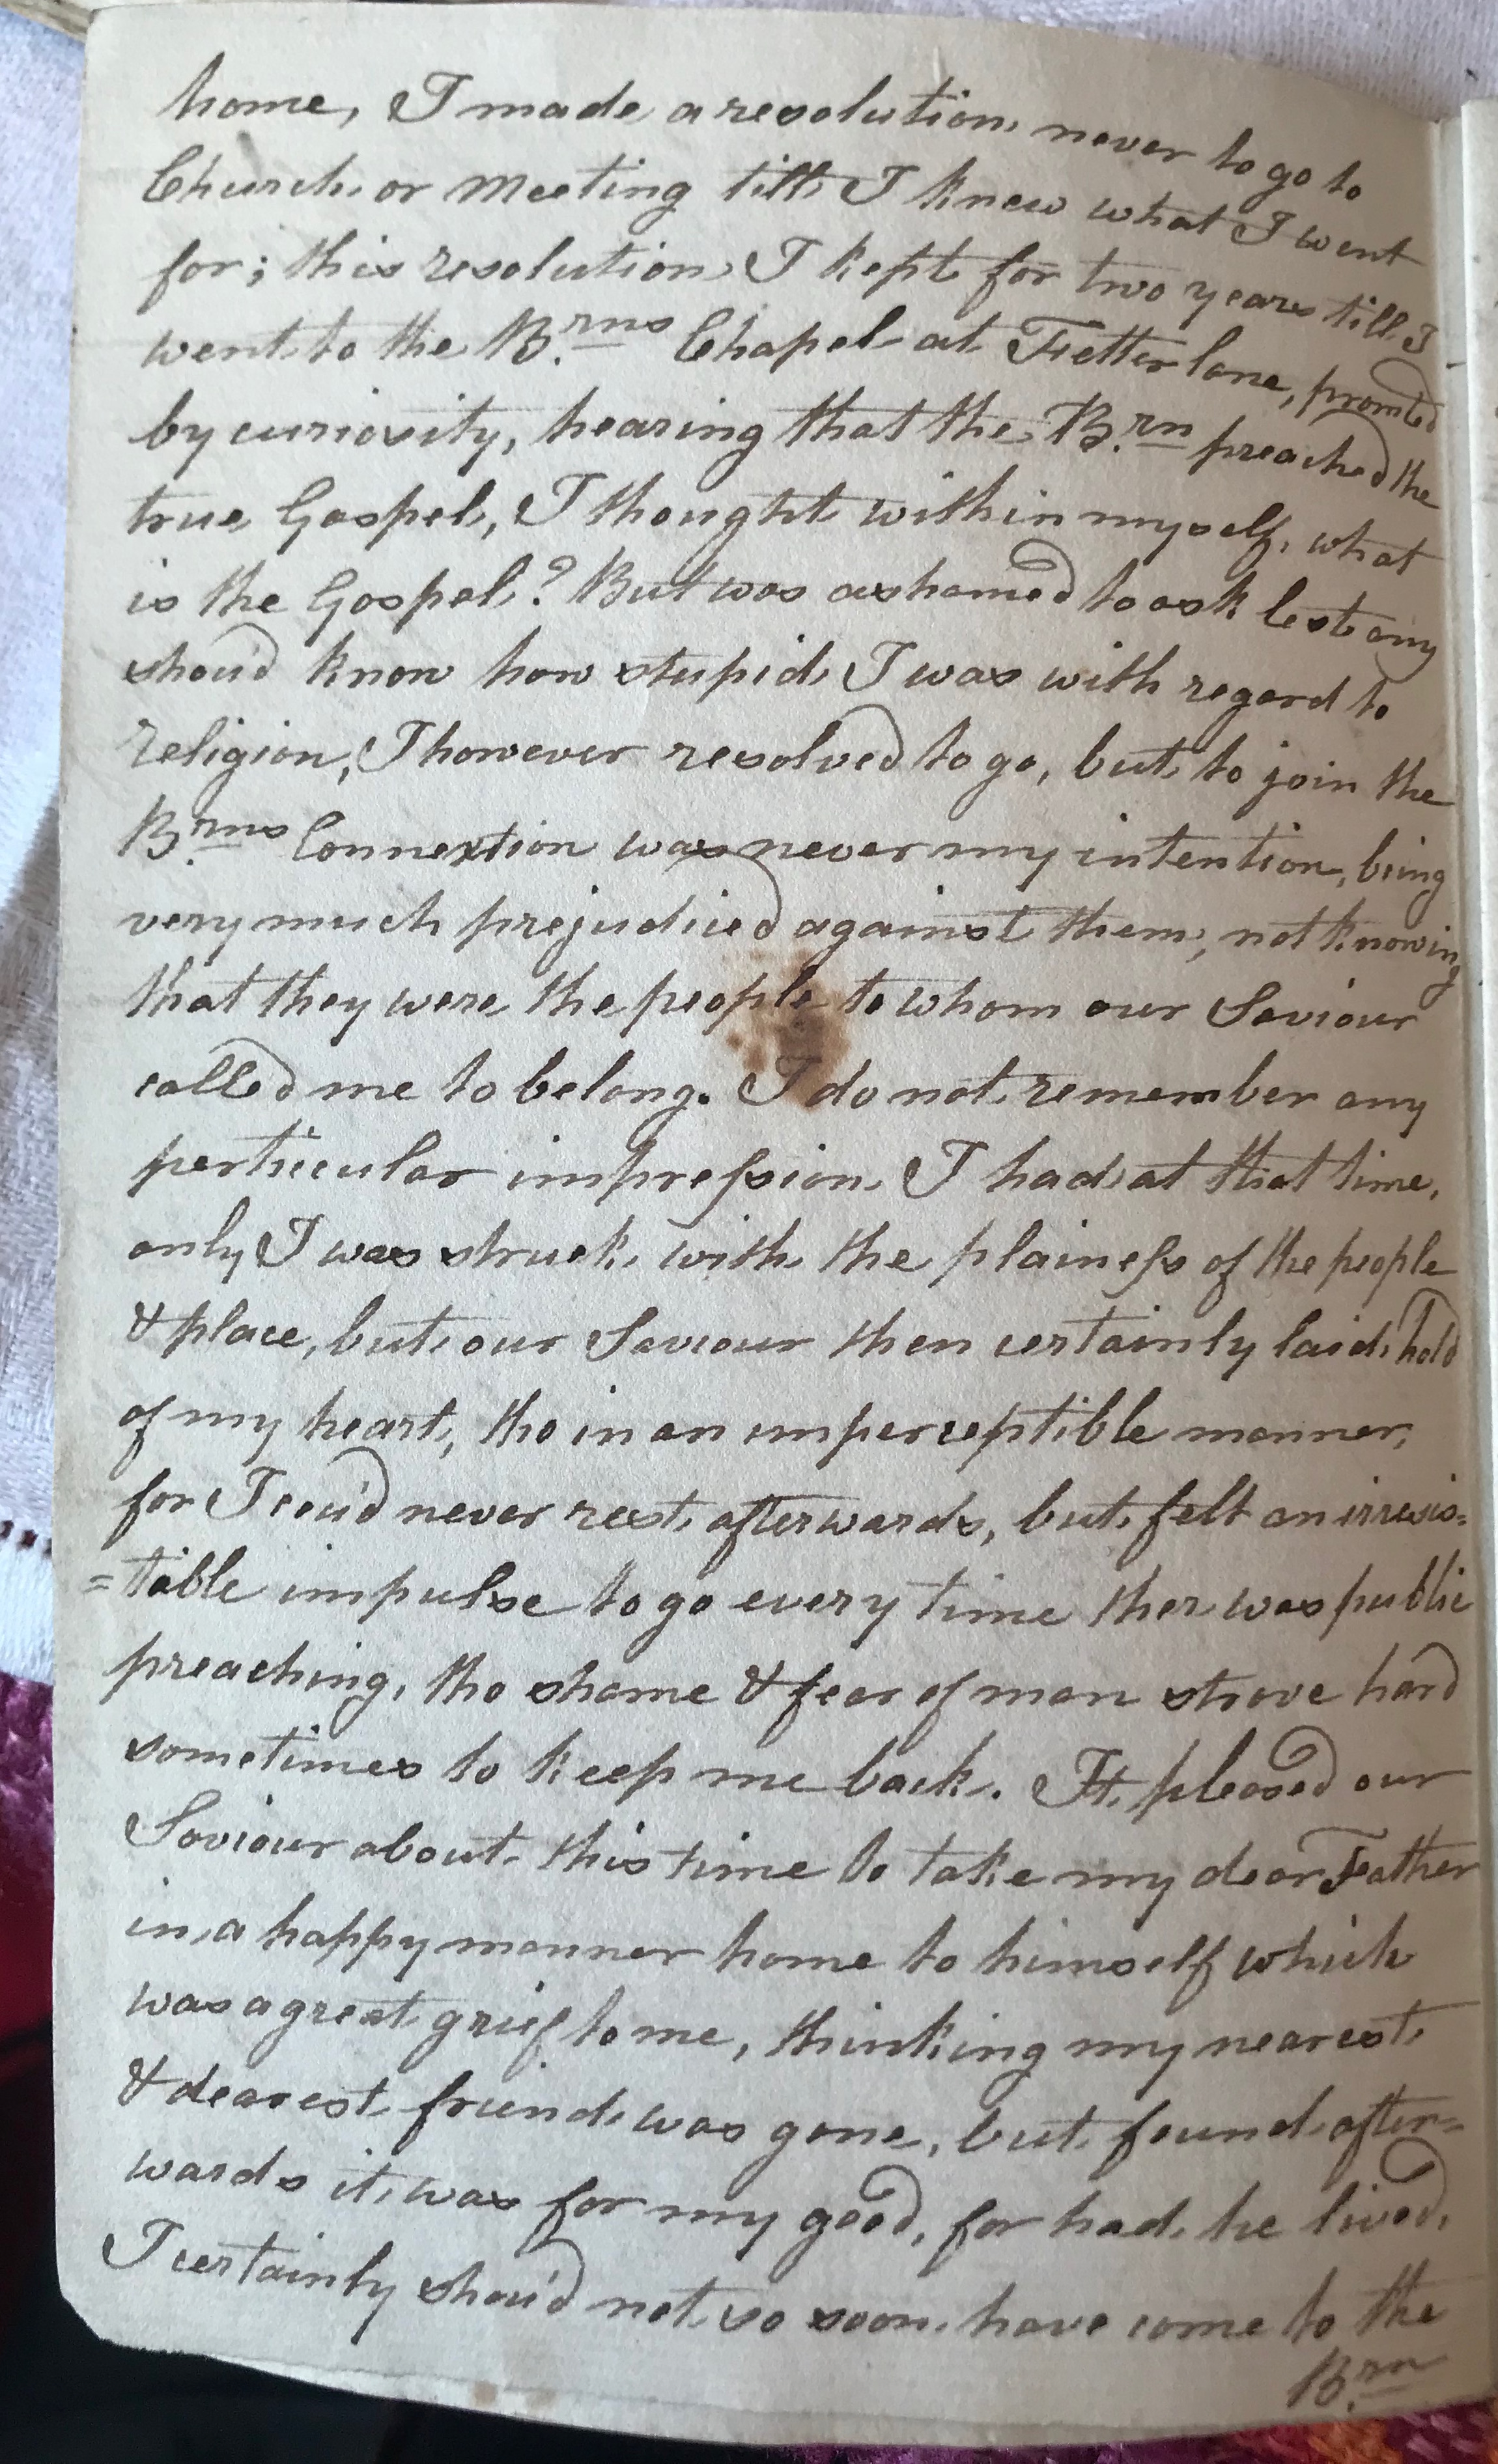 home, I made a resolution never to go to
Church or Meeting till I knew what I went
for; this resolution I kept for two years till I
went to the B.rns Chapel at Fetter lane, promted
by curiosity, hearing that the B.rn preached the
true Gospel, I thought within myself, what
is the Gospel? But was ashamed to ask lest any
shou'd know how stupid I was with regard to
religion, I however resolved to go, but to join the
B.rns Connextion was never my intention, being
very much prejudiced against them, not knowing
that they were the people to whom our Saviour
called me to belong. I do not remember any
perticular impression I had at that time,
only I was struck with the plainess of the people
& place, but our Saviour then certainly laid hold
of my heart, tho in an imperceptible manner,
for I cou'd never rest afterwards, but felt an irresis=
=table impulse to go every time ther was public
preaching, tho shame & fear of man strove hard
sometimes to keep me back. It pleased our
Saviour about this time to take my dear Father
in a happy manner home to himself which
was a great grief to me, thinking my nearest
& dearest friend was gone, but found after=
wards it was for my good, for had he lived,
I certainly shou'd not so soon have come to the
B.rn